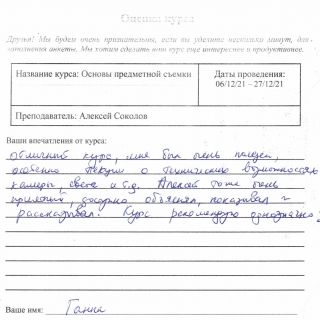 Оценка курса
Друзья! Мы будем очень признательны, если вы уделите несколько минут, для
заполнения анкеты. Мы хотим сделать наш курс еще интереснее и продуктивнее.
Название курса: Основы предметной съемки
Даты проведения:
06/12/21 – 27/12/21
Преподаватель: Алексей Соколов
Ваши впечатления от курса:
Отличный курс, мне был очень полезен,
особенно лекции о технических возможностях
камеры, света и т.д. Алексей тоже очень
приятный, доступно объяснял, показывал и
рассказывал. Курс рекомендую однозначно!
Ваше имя: Ганна